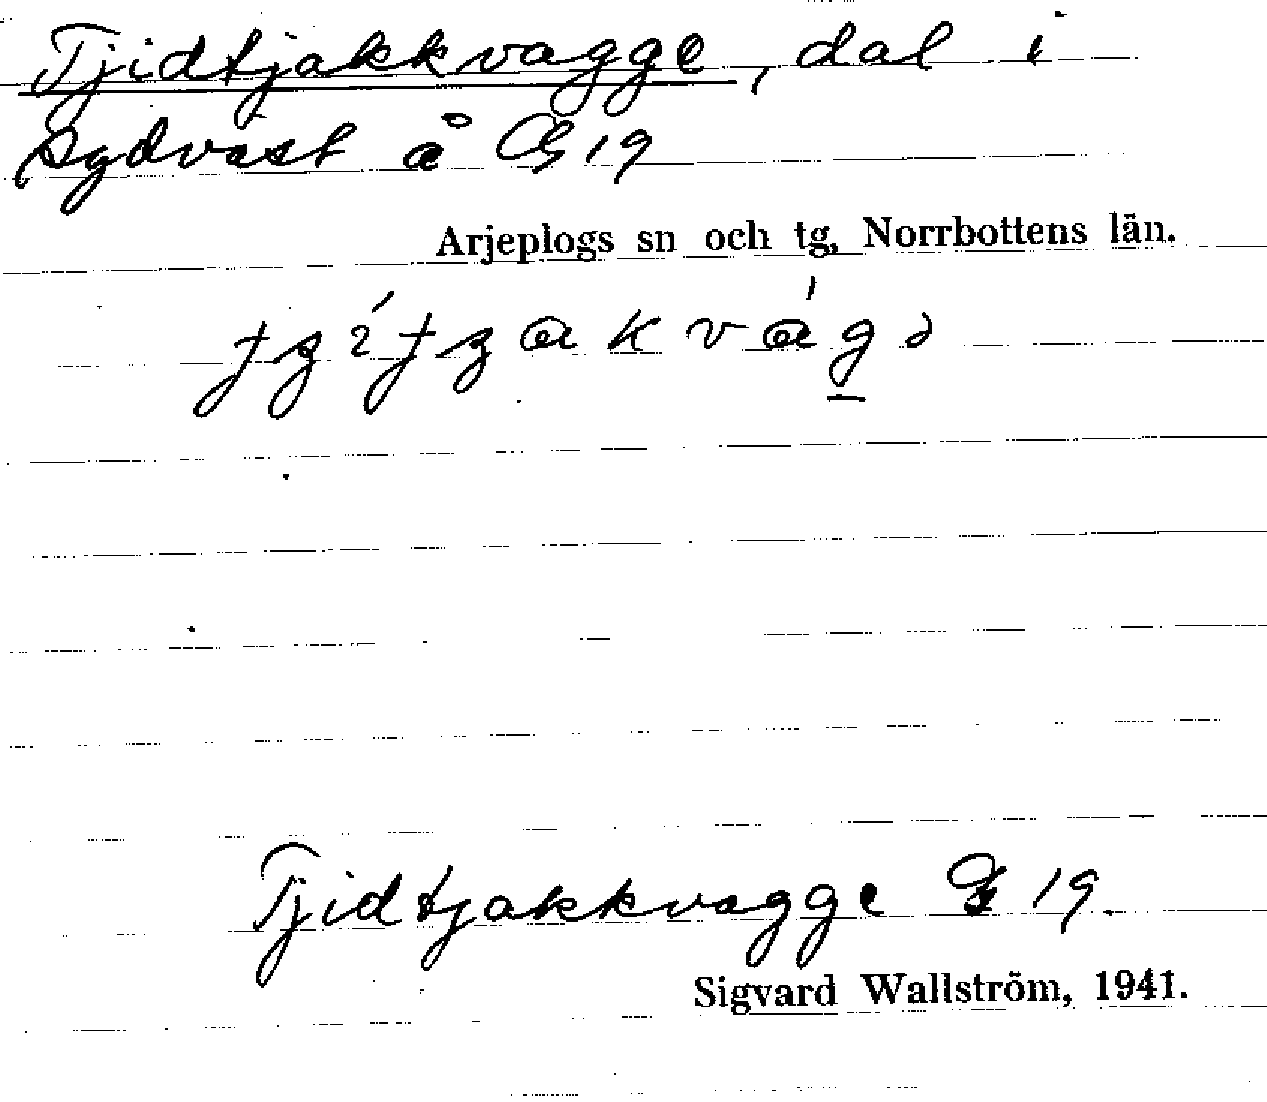 Tjidtjakkvagge, dal i
sydväst å G 19
Arjeplogs sn och tg, Norrbottens län.
Tjidtjakkvagge G 19.
Sigvard Wallström, 1941.